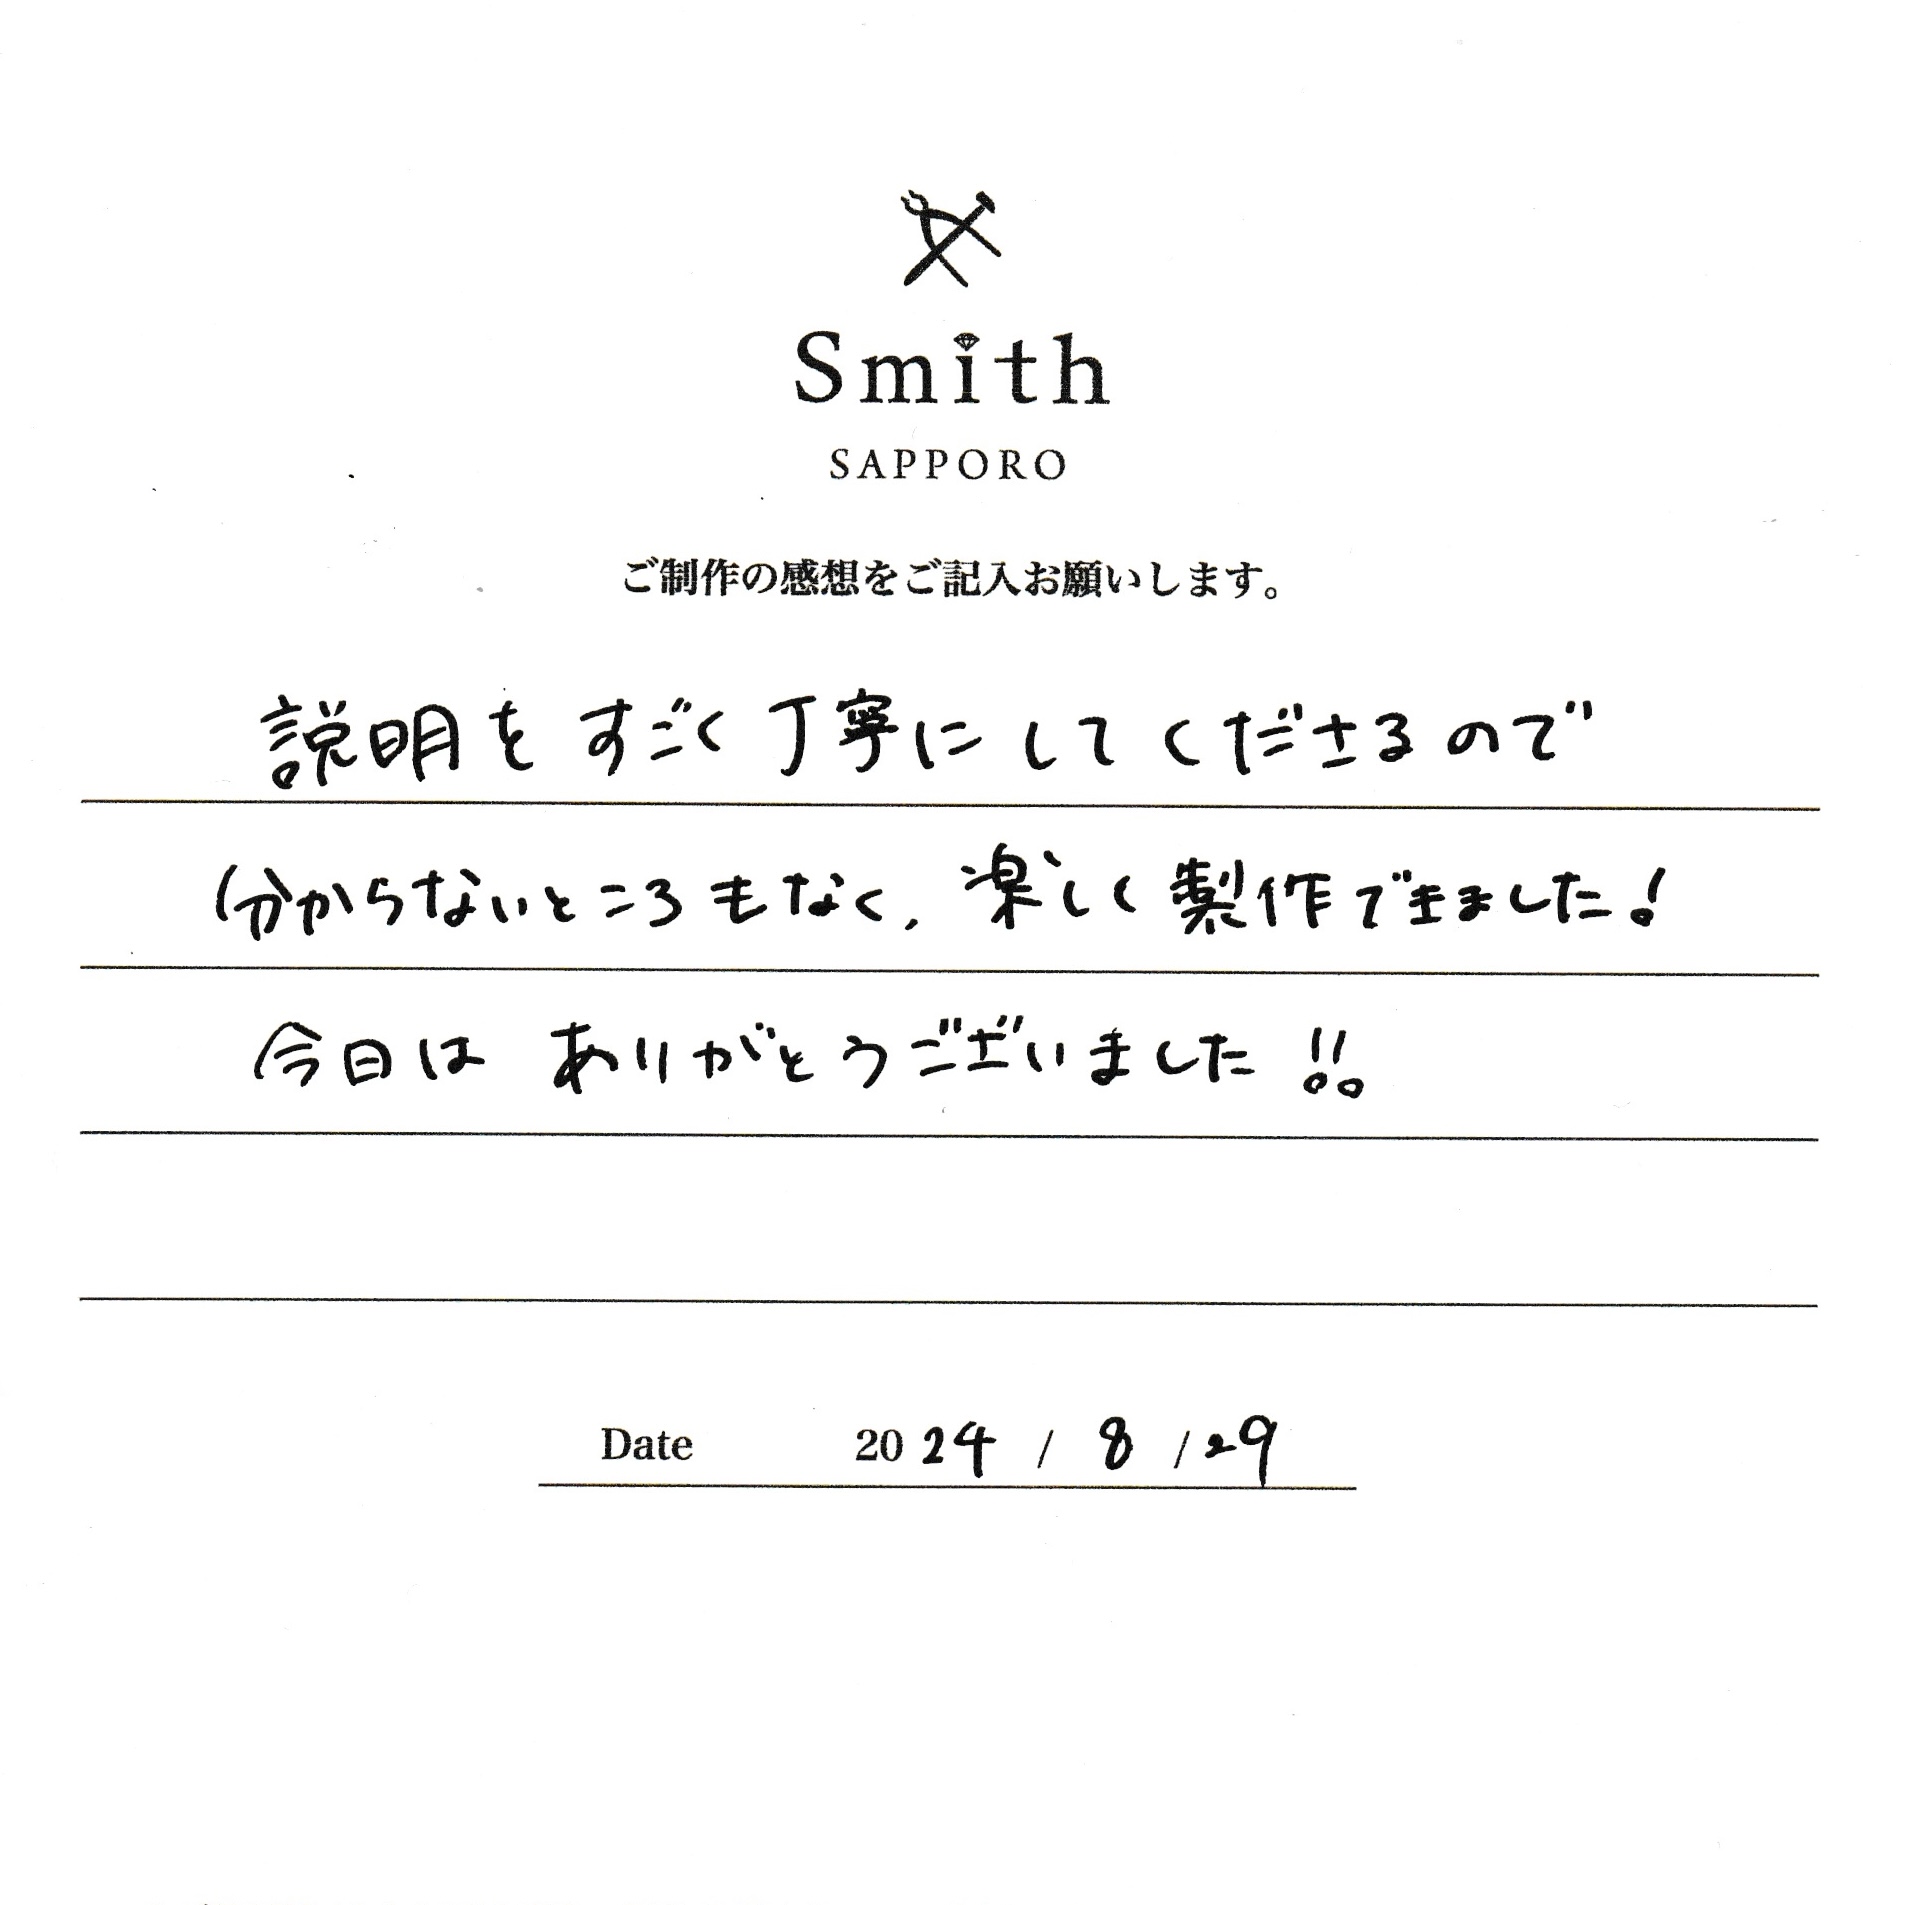 Smith
SAPPORO
ご制作の感想をご記入お願いします。
説明をすごく丁寧にしてくださるので
分からないところもなく、楽しく製作できました!
今日は ありがとうございました!!
Date 2024 / 8 / 29